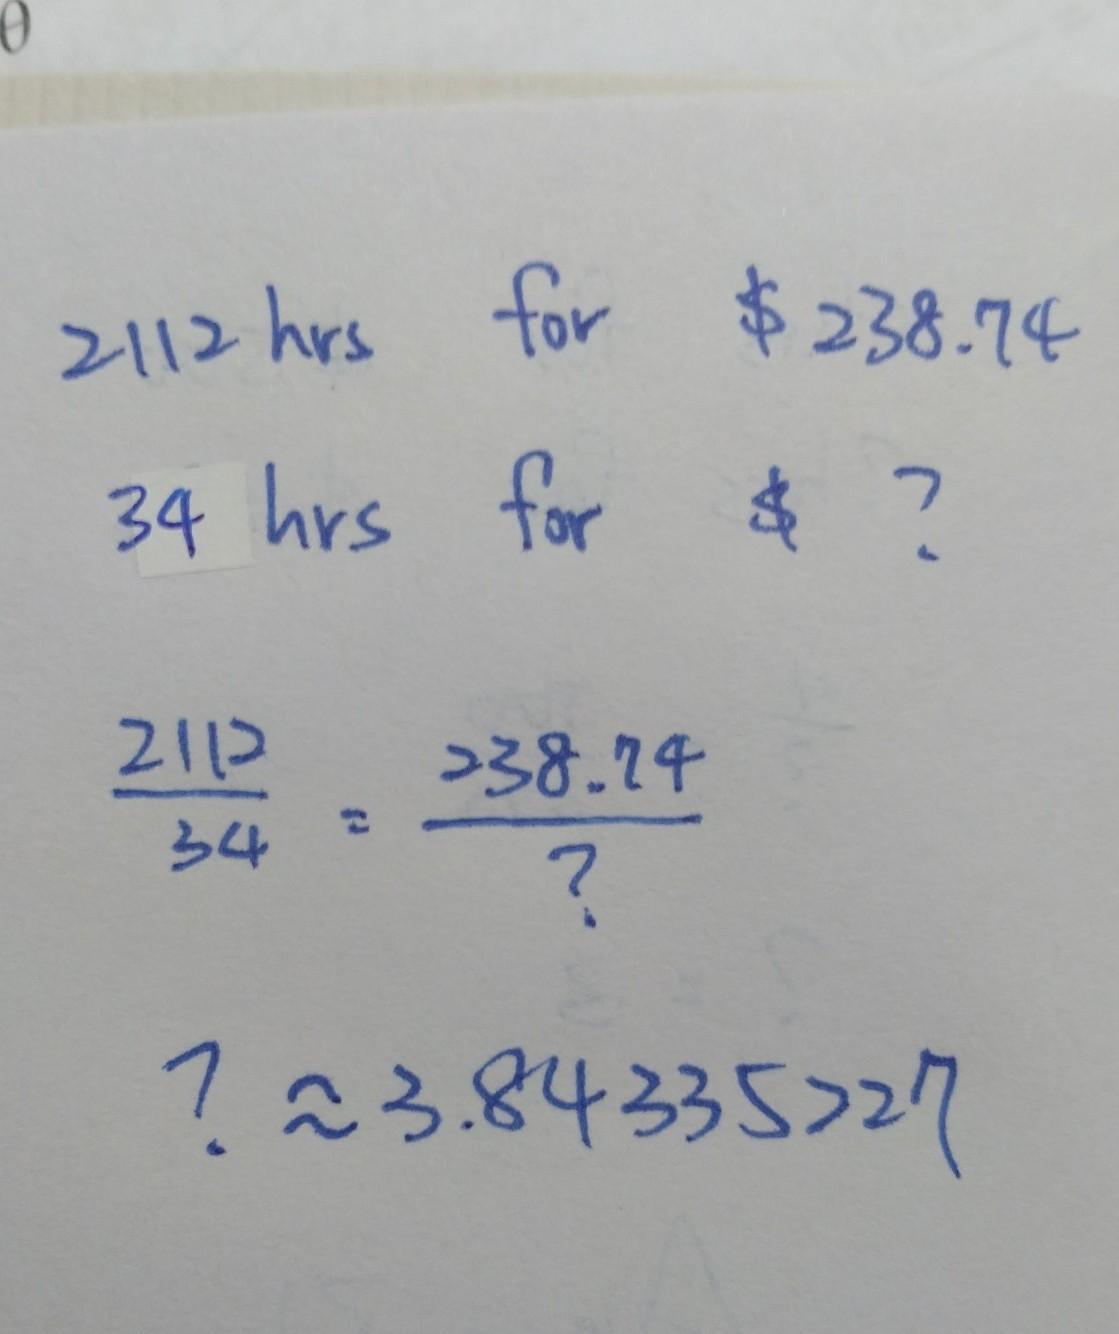 θ
2112 hrs for $ 238.74
34 hrs for $ ?
2112/34 = 238.74/?
? ≈ 3.84335227